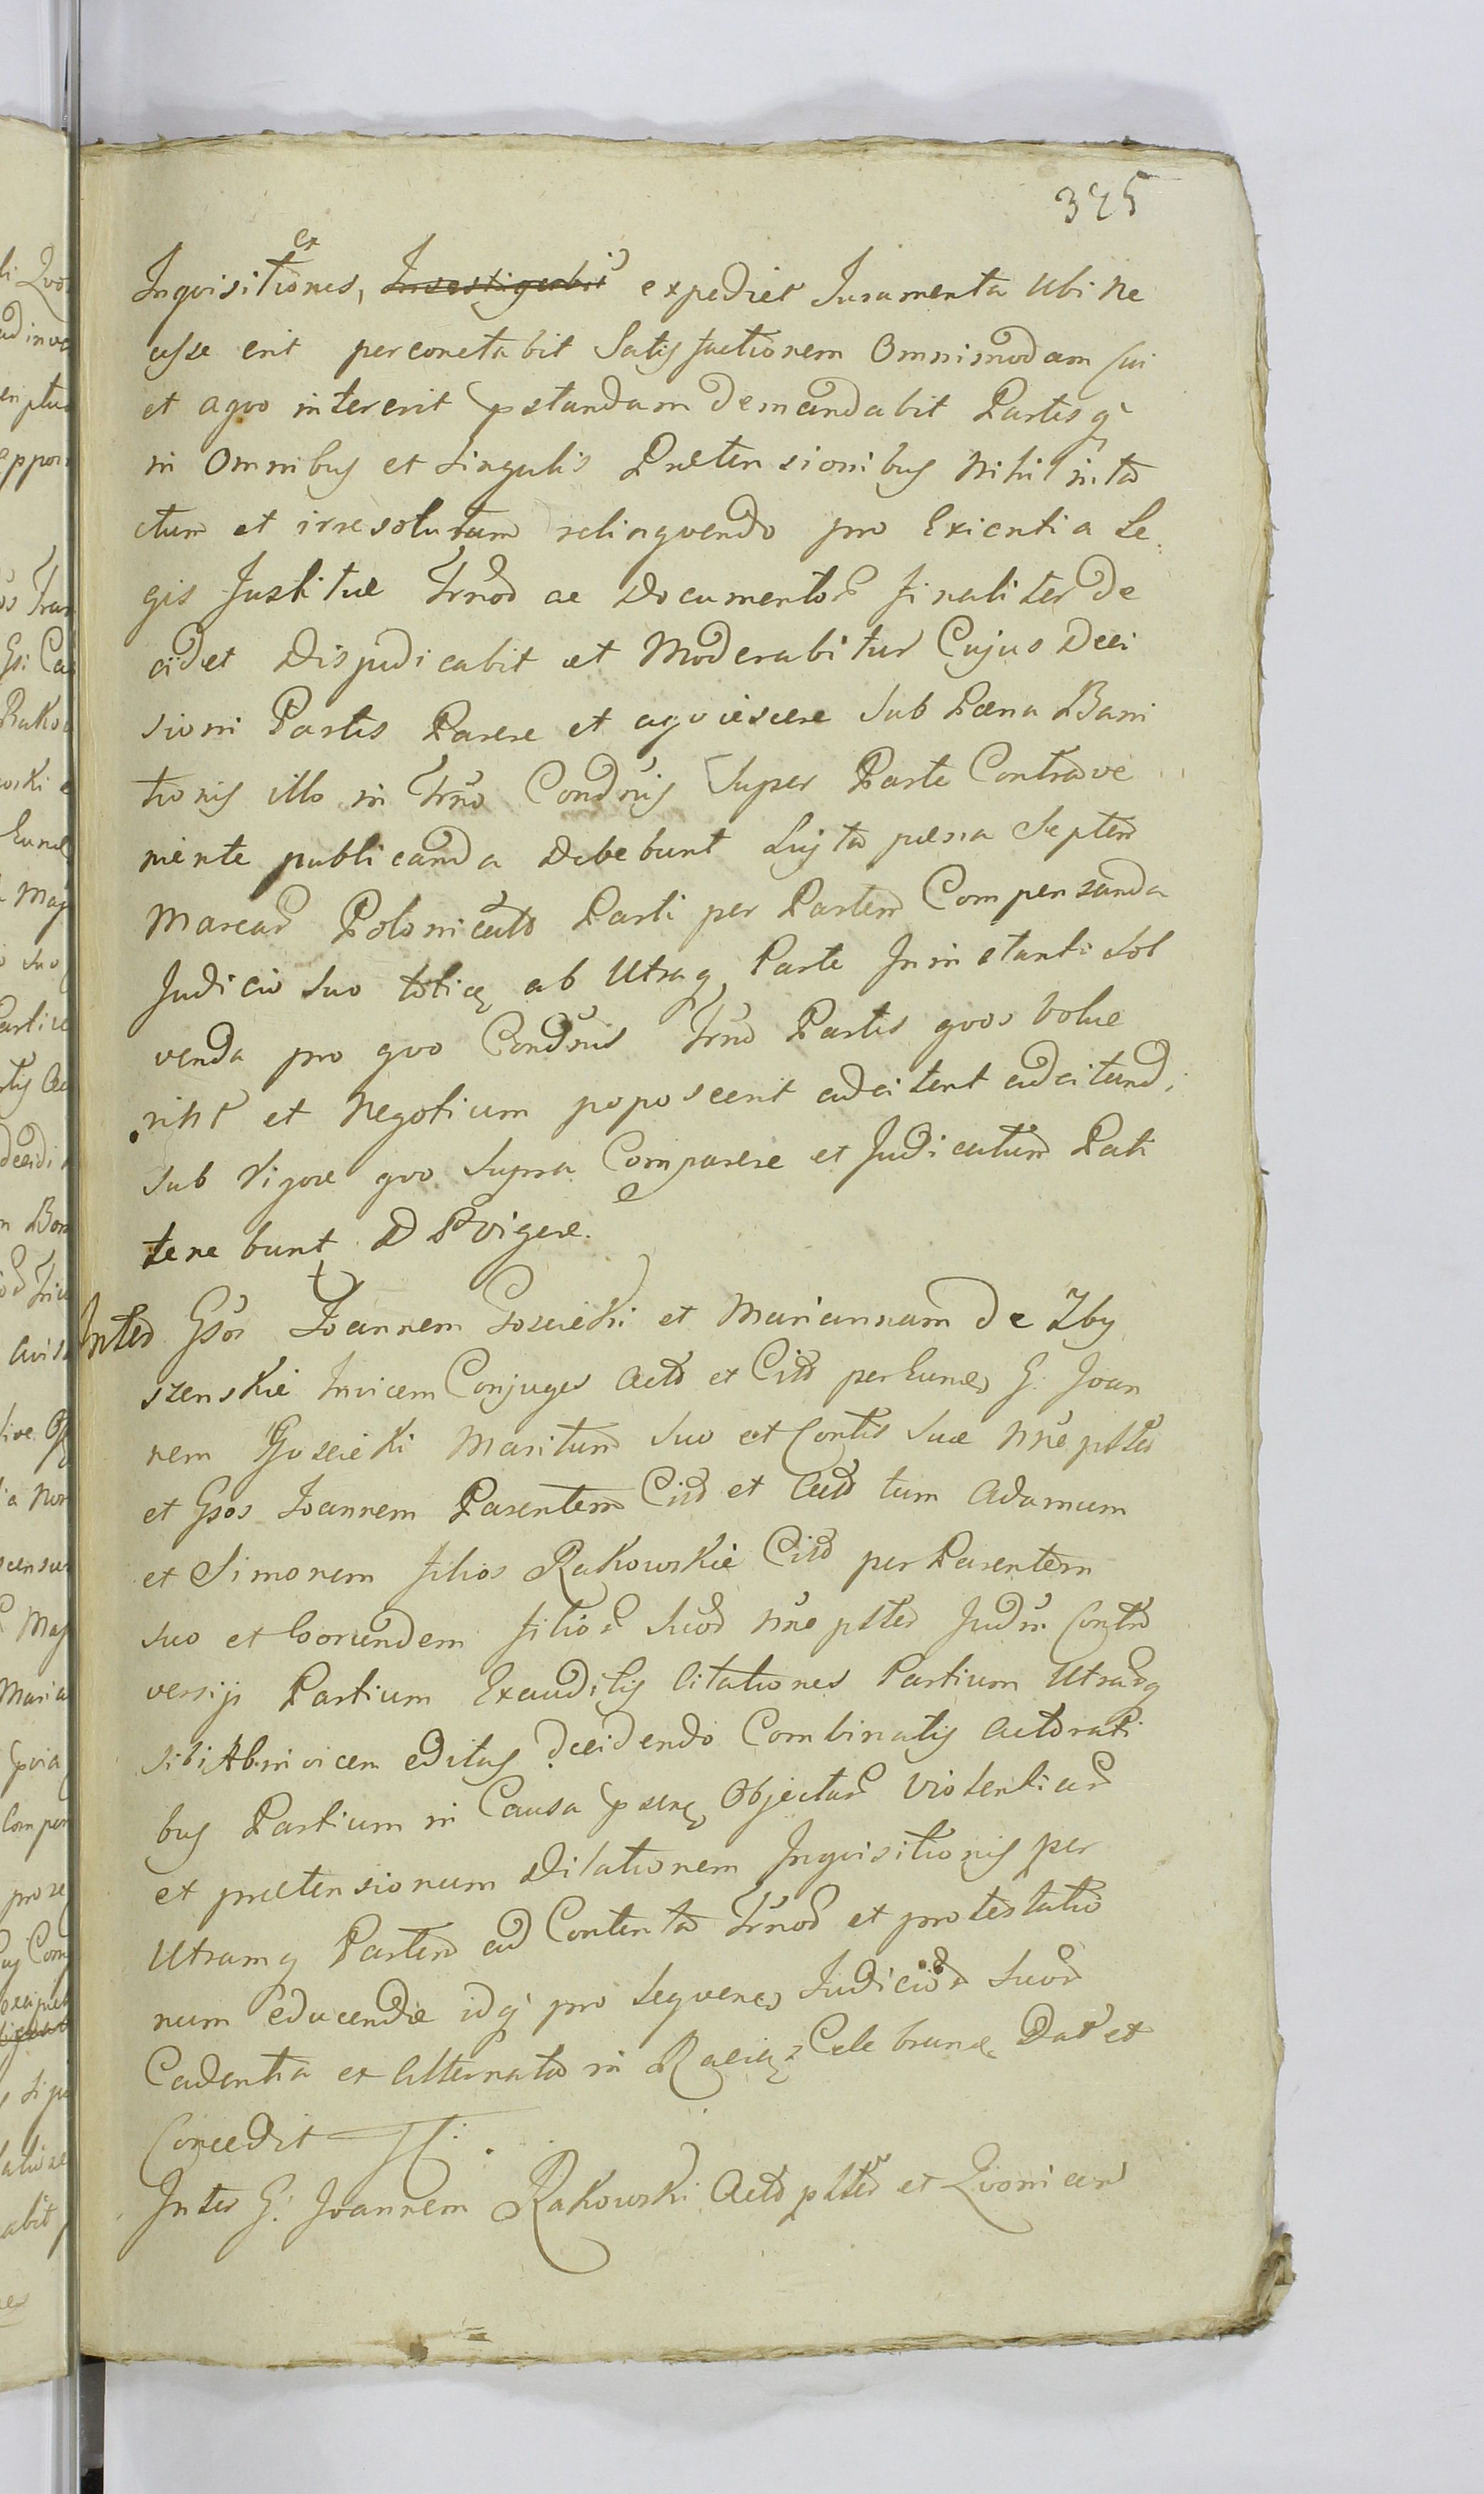 325
ex
Inqvisitiones, Investigabit expediet Juramenta Ubi ne
cesse erit perconctabit Satisfactionem Omnimodam Cui
et aqvo intererit pstandam demandabit Partesq
in Omnibus et Singulis Prætensionibus Nihil inta
ctum et irresolutum relinqvendo pro Exientia Le
gis Justitiæ Trnor ac Documentor finaliter de
cidet Dispudicabit et Moderabitur Cujus Deci
sioni Partes Parere et aqviescere Sub Pæna Bani
tionis illo in Trno Condnis Super Parte Contrave
niente publicanda Debebunt Luita pæna Septem
Marcar Polonicalis Parti per Partem Compensanda
Judicio Suo totieq ab Utraq Parte Ininstanti Sol
venda pro qvo Condnis Trno Partes qvos Volue
rint et Negotium poposcerit adcitent adcitand
Sub Vigore qvo Supra Comparere et Judicatum Pati
tenebunt D P Vigere.
Inter Gsos Joannem Gosciecki et Mariannam De Zby
szenskie Invicem Conjuges Act et Cit per Eund G. Joan
nem Gosciecki Maritum Suo et Contis Suæ nne plter
et Gsos Joannem Parentem Cit et Act tum Adamum
et Simonem filios Rakowskie Cit per Parentem
Suo et Eorundem filior Suor nne plter Judm Contro
versijs Partium Exauditis Citationes Partium Utrarq
sibi Abinvicem editas decidendo Combinatis Actorati
bus Partium in Causa psenq Objectar Violentiar
et prætensionum Dilationem Inqvisitionis per
Utramq Partem ad Contenta Trnor et protestatio
num educendæ idq pro Seqvene Judicior Suor
Cadentia et Alternata in Raciaz Celebrand Dat et
Concedit
Inter G. Joannem Rakowski Act plter et Livoniam